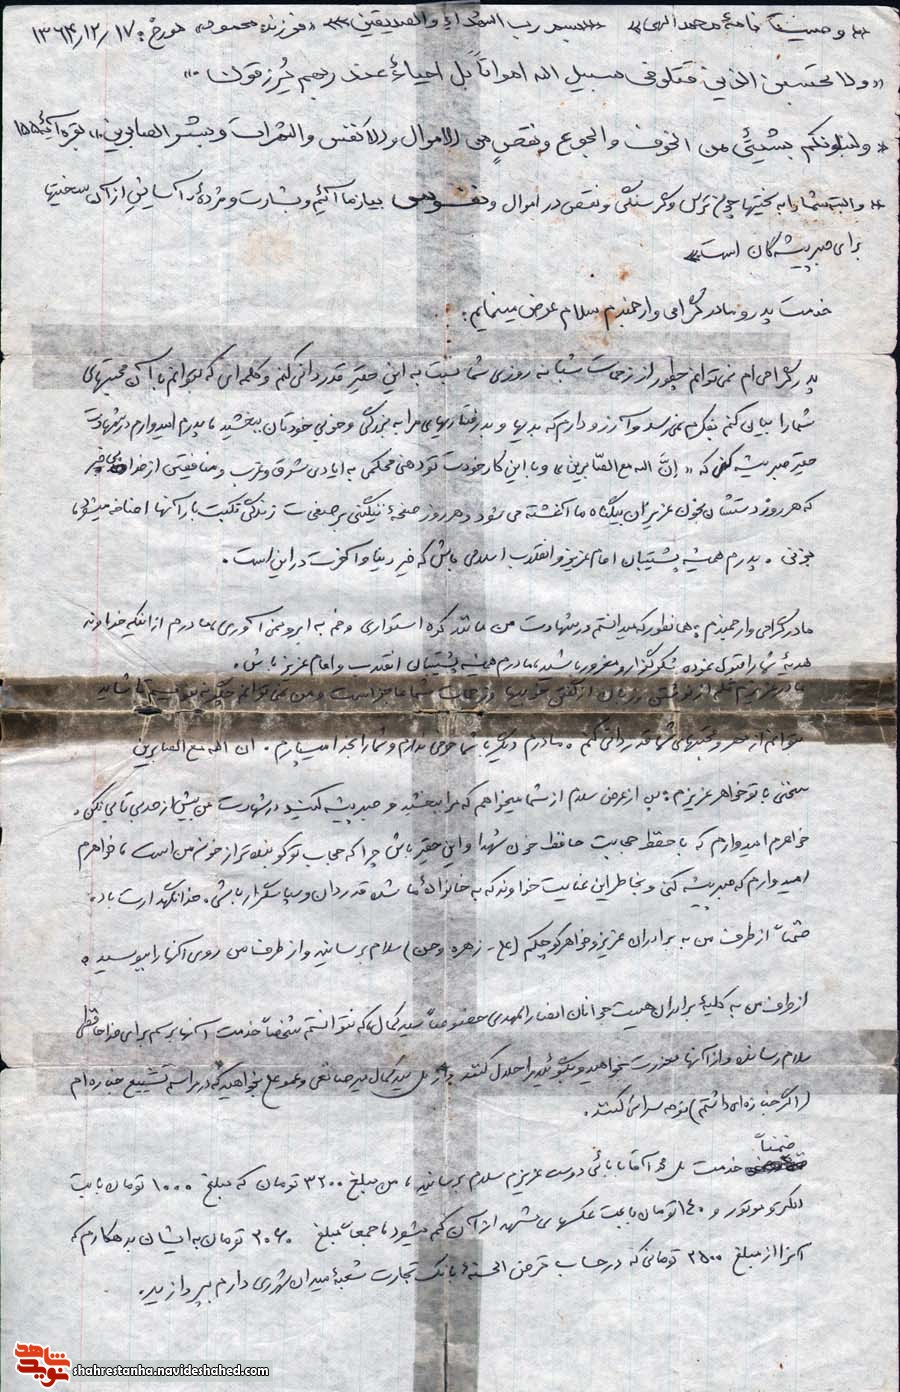 ** وصیت نامهٔ محمد الهی ** «بسم رب الشهداء والصدیقین» ** «فرزند محمود» مورخ: ۱۷/۱۲/۱۳۶۴
«ولا تحسبن الذین قتلو فی سبیل الله امواتاً بل احیاءٌ عند ربهم یُرزقون.»
* ولنبلونکم بشیئی من الخوف والجوع ونقصٍ من الاموال والانفس والثمرات وبشر الصابرین.» بقره آیهٔ ۱۵۵
* و البته شما را به سختیها چون ترس و گرسنگی و نقص در اموال و نفوس بیازمائیم و بشارت و مژدهٔ آسایش از آن سختیها
برای صبر پیشه گان است
خدمت پدر و مادر گرامی و ارجمندم سلام عرض مینمایم.
پدر گرامی ام نمی توانم چطور از زحمات شبانه روزی شما نسبت به این حقیر قدردانی کنم و کلمه ای که بتوانم با آن محبتهای
شما را بیان کنم بفکرم نمی رسد و آرزو دارم که بدیها و بدرفتاریهای مرا به بزرگی و خوبی خودتان ببخشید، پدرم امیدوارم در شهادت
حقیر صبر پیشه کنی که «إنّ الله مع الصّابرین» و با این کار خودت تو دهنی محکمی به ایادی شرق و غرب و منافقین از خدا بی خبر
که هر روز دستشان بخون عزیزان بیگناه ما آغشته می شود و هر روز صفحهٔ ننگینی بر صفحات زندگی نکبت بار آنها اضافه میشود،
بزنی. پدرم همیشه پشتیبان امام عزیز و انقلاب اسلامی باش که خیر دنیا و آخرت در این است.
مادر گرامی و ارجمندم، همانطور که میدانستم در شهادت من مانند کوه استواری و خم به ابرو نمی آوری، مادرم از اینکه خداوند
هدیهٔ شما را قبول نموده شکرگزار و مغرور باشید، مادرم همیشه پشتیبان انقلاب و امام عزیز باش.
مادر عزیزم قلم از نوشتن و زبان از گفتن خوبیها و زحمات شما عاجز است و من نمی توانم چگونه بنویسم تا شاید
بتوانم از مهر و محبتهای شما قدردانی کنم. مادرم دیگر با شما حرفی ندارم و شما را بخدا میسپارم. ان الله مع الصابرین
سخنی با تو خواهر عزیزم: پس از عرض سلام از شما میخواهم که مرا ببخشید و صبر پیشه کنید در شهادت من بیش از حد بی تابی نکنی.
خواهرم امیدوارم که با حفظ حجابت حافظ خون شهدا و این حقیر باشی چرا که حجاب تو کوبنده تر از خون من است، خواهرم
امیدوارم که صبر پیشه کنی و بخاطر این عنایت خداوند که به خانوادهٔ ما شده قدردان و سپاسگزار باشی. خدا نگهدارت باد.
حتماً از طرف من به برادران عزیز و خواهر کوچکم (علی - زهره و حسن) سلام برسانید و از طرف من روی آنها را ببوسید.
از طرف من به کلیهٔ برادران هیئت جوانان انصارالمهدی خصوصاً سید کمال که نتوانستم شخصاً خدمت آنها برسم برای خداحافظی
سلام رسانده و از آنها معذرت بخواهید و بگوئید مرا حلال کنند و از سید کمال میرصانعی و عمو علی بخواهید که در مراسم تشییع جنازه ام
(اگر جنازه ای داشتم) نوحه سرائی کنند.
ضمناً
خدمت آقا بابائی دوست عزیزم سلام برسانید، من مبلغ ۳۲۰۰ تومان که مبلغ ۱۰۰۰ تومان بابت
موتور و ۱۴۰ تومان بابت عکسهای مشهد از آن کم میشود، جمعاً مبلغ ۲۰۶۰ تومان به ایشان بدهکارم که
آنرا از مبلغ ۲۵۰۰ تومانی که در حساب قرض الحسنهٔ بانک تجارت شعبهٔ میدان شهدری دارم بپردازید.
شاهد
نوید
shahrestanha.navideshahed.com